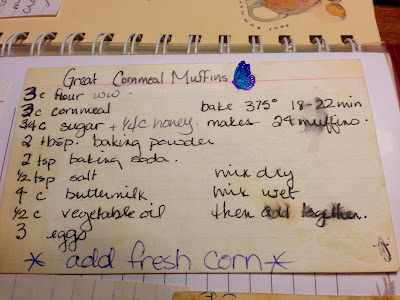 Great Cornmeal Muffins
3 c flour ww.
3 c cornmeal bake 375° 18-22 min
3/4 c sugar + 1/4 c honey. makes 24 muffins.
2 tbsp. baking powder
2 tsp baking soda.
1/2 tsp salt mix dry
4 c buttermilk. mix wet
1/2 c vegetable oil then add together.
3 eggs
* add fresh corn *